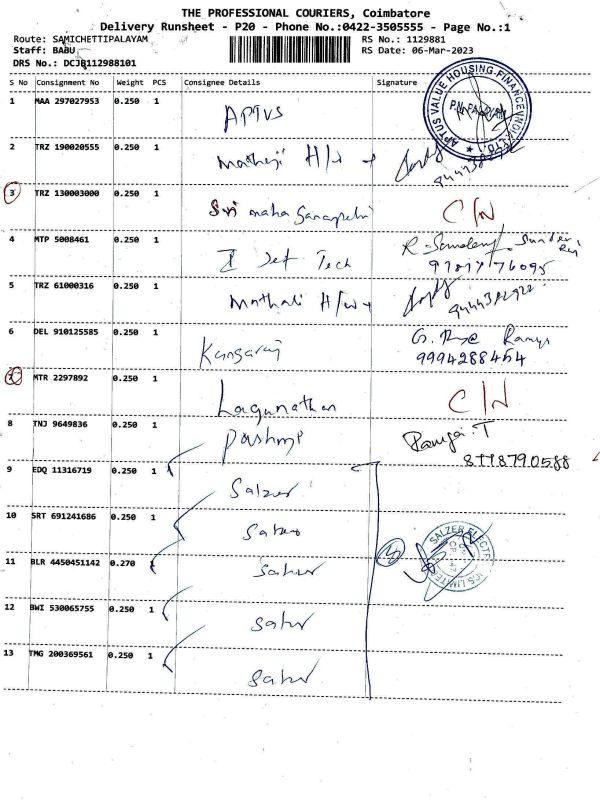 THE PROFESSIONAL COURIERS, Coimbatore
Delivery Runsheet - P20 - Phone No.:0422-3505555 - Page No.:1
Route: SAMICHETTIPALAYAM RS No.: 1129881
Staff: BABU RS Date: 06-Mar-2023
DRS No.: DCJB112988101
S No Consignment No Weight PCS Consignee Details Signature
1 MAA 297027953 0.250 1 APTUS
APTUS VALUE HOUSING FINANCE INDIA LTD.
2 TRZ 190020555 0.250 1 H/w
3 TRZ 130003000 0.250 1 Sri maha Ganapathi C/N
4 MTP 5008461 0.250 1 Jet Tech
5 TRZ 61000316 0.250 1 H/w
6 DEL 910125585 0.250 1 Kangaraj
9994288464
7 MTR 2297892 0.250 1 Lagunathan C/N
8 TNJ 9649836 0.250 1
9 EDQ 11316719 0.250 1 Salzer
10 SRT 691241686 0.250 1 Salzer
11 BLR 4450451142 0.270 Salzer
SALZER ELECTRONICS LIMITED
12 BWI 530065755 0.250 1 Salzer
13 TMG 200369561 0.250 1 Salzer